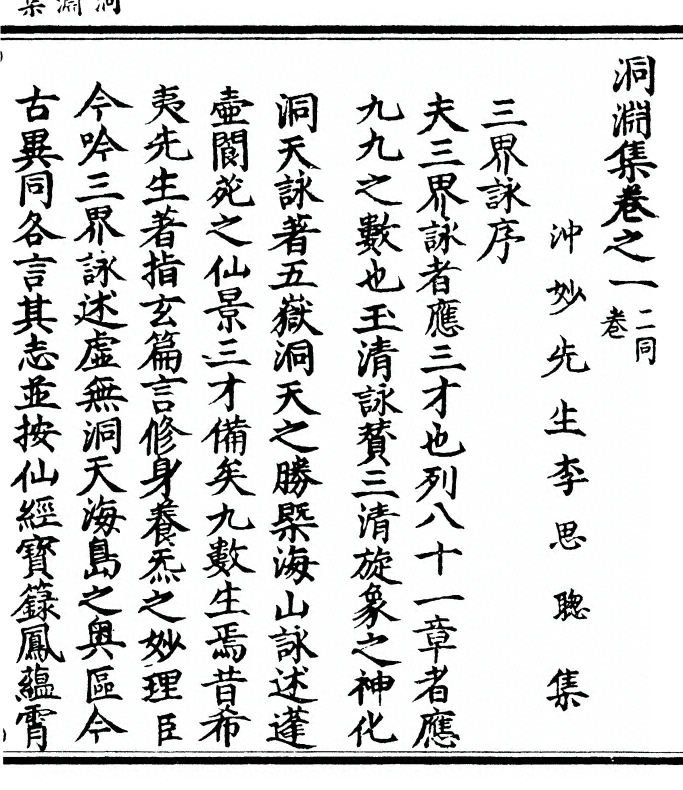 洞淵集
洞淵集卷之一 二同卷
沖妙先生李思聰集
三界詠序
夫三界詠者應三才也列八十一章者應
九九之數也玉清詠贊三清旋象之神化
洞天詠著五嶽洞天之勝槩海山詠述蓬
壺閬苑之仙景三才備矣九數生焉昔希
夷先生著指玄篇言修身養炁之妙理臣
今吟三界詠述虛無洞天海島之奧區今
古異同各言其志並按仙經寶籙鳳蘊霄